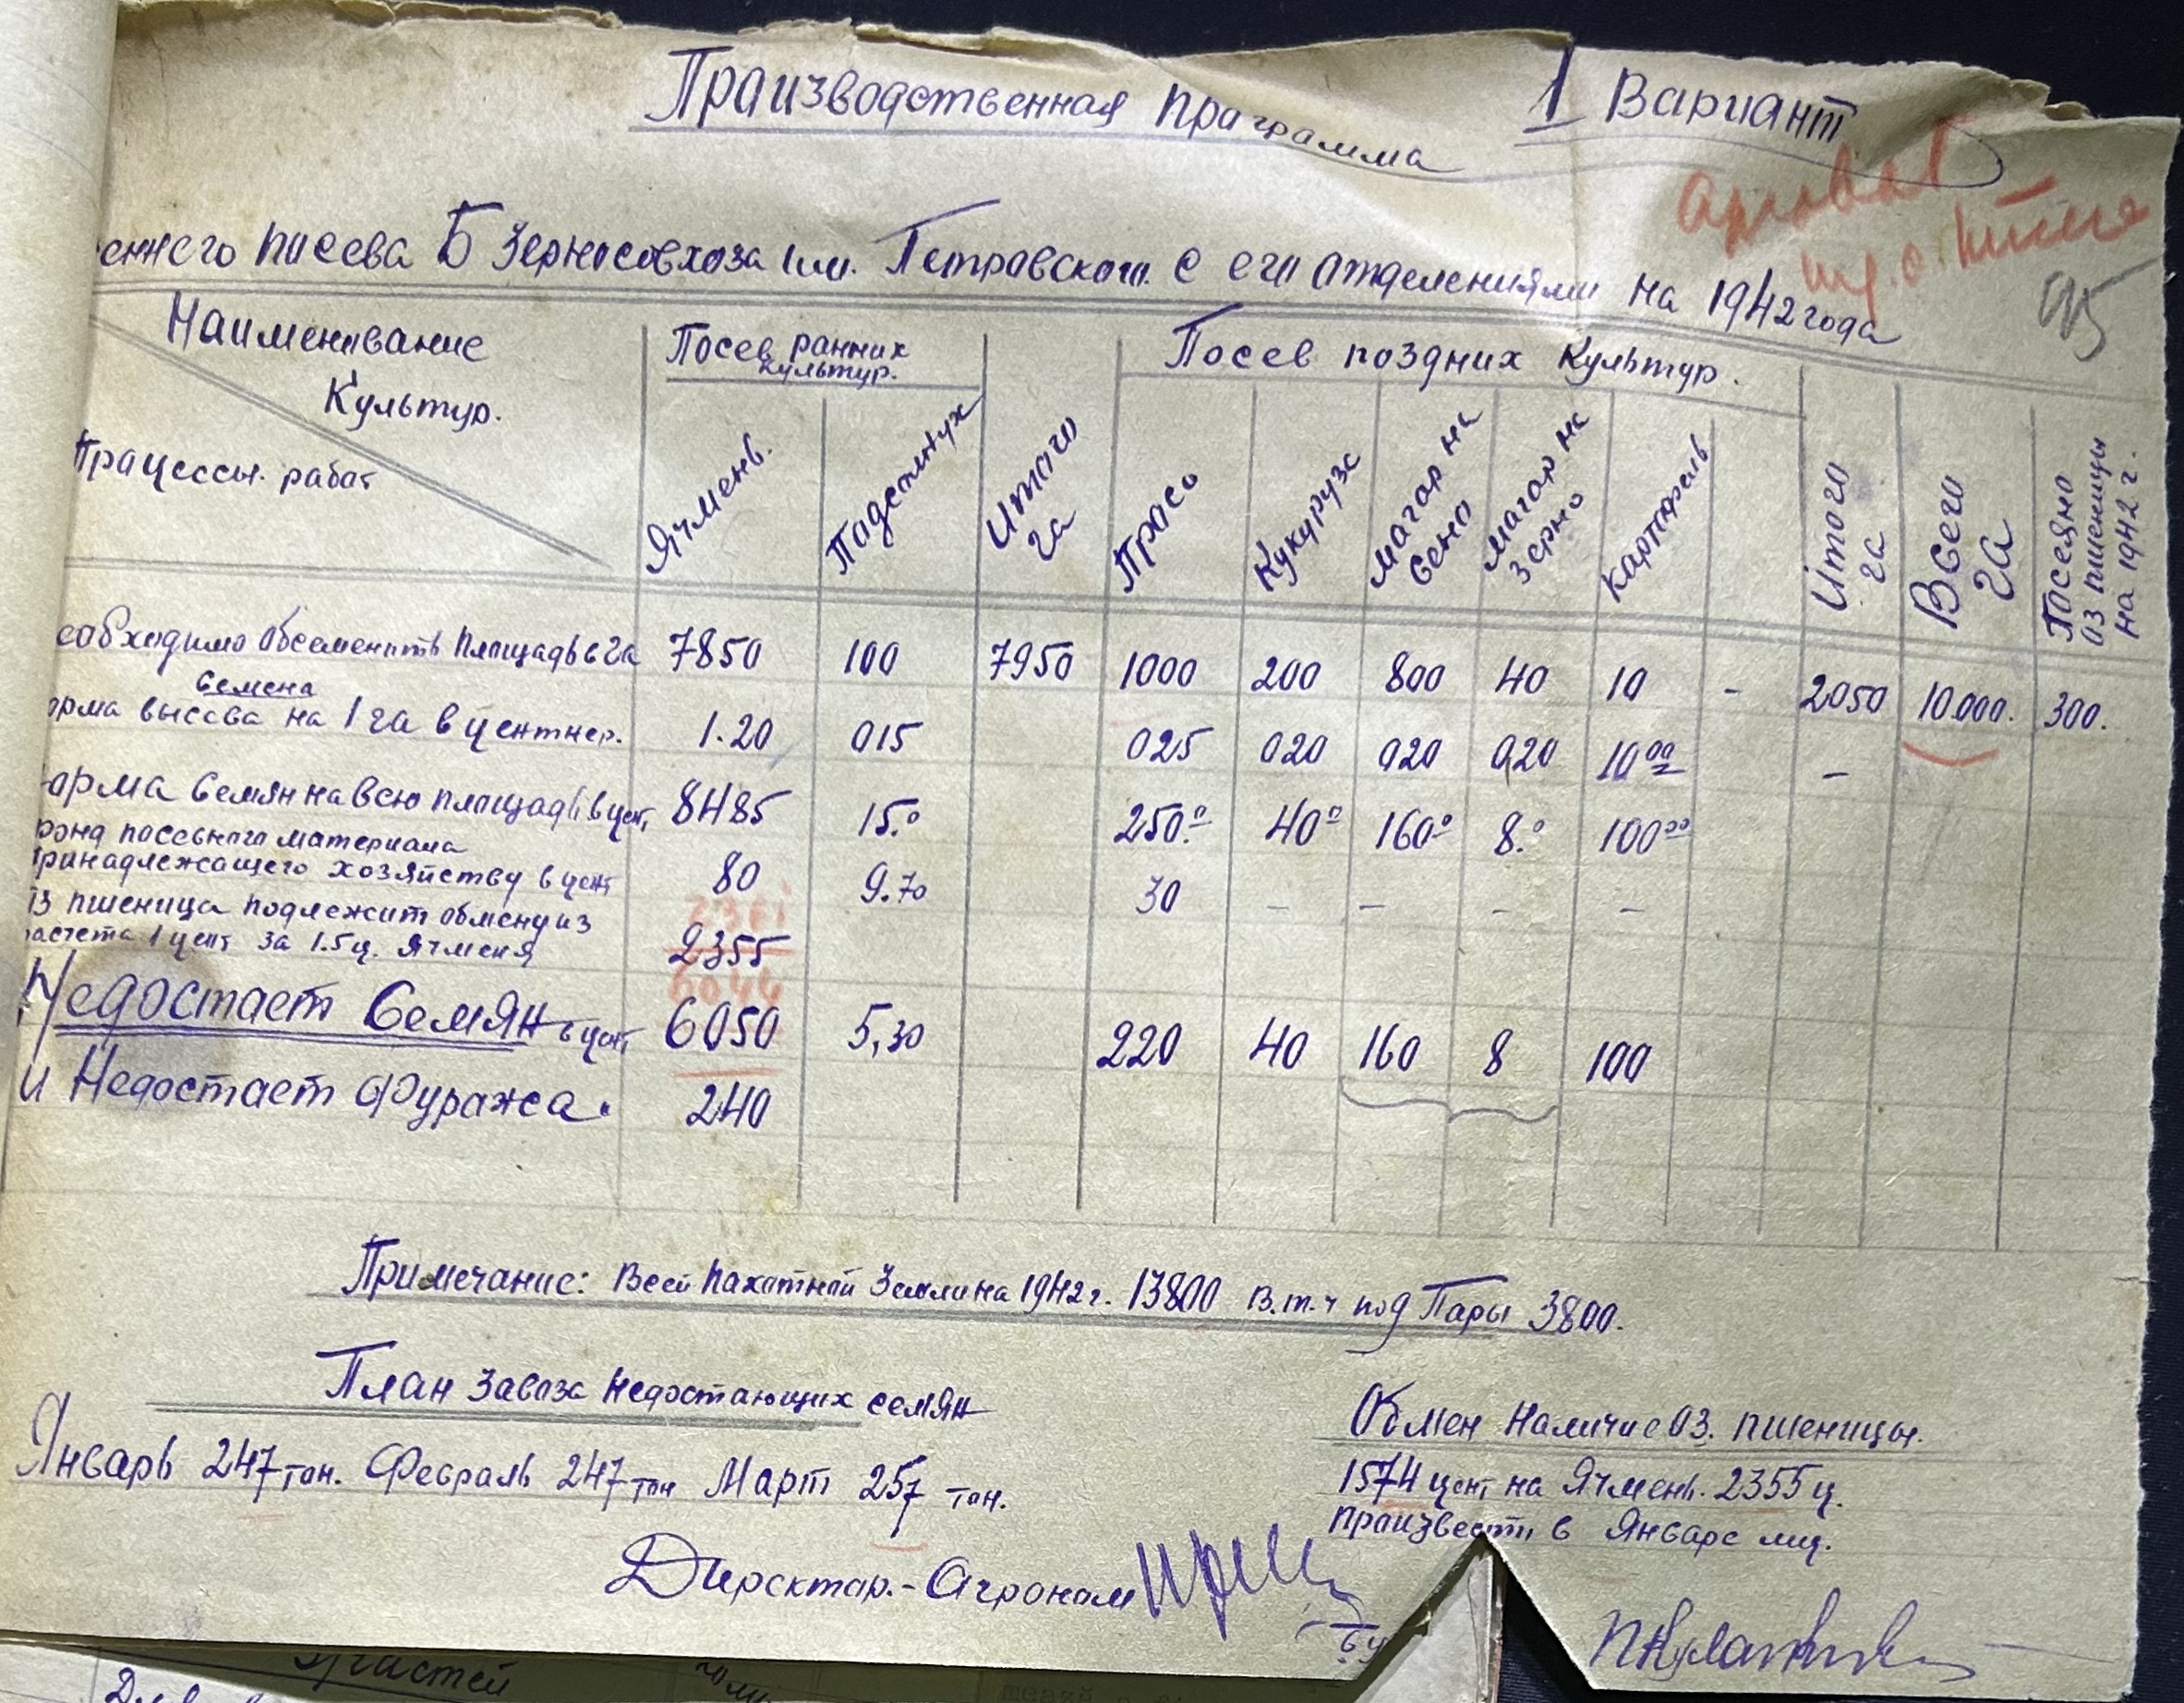 Праизводственная праграмма 1 Вариант
еннего посева Б Зерносовхоза им. Петровского с его отделениями на 1942 года
Наименование Культур.
Працессы. работ
Посев ранних культур.
Ячмень.
Падсолнух
Итого га
Посев поздних Культур.
Прасо
Кукуруза
Магар на Сено
Магар на Зерно
Картофель
Итого га
Всего га
Посеяно оз пшеницы на 1942 г.
еобходимо Обсеменить Площадь в Га 7850 100 7950 1000 200 800 40 10 - 2050 10.000. 300.
орма высева Семена на 1 га в центнер. 1.20 015 025 020 020 0,20 10 00 -
орма Семян на всю площадь в цент, 8485 15.0 250.0 40 0 160 0 8.0 100 00
фонд посевного материала
принадлежащего хозяйству в цент 80 9.70 30 - - - -
Оз пшеница подлежит обмену из
расчета 1 цент за 1.5 ц. Ячменя 2355
Недостает Семян в цент, 6050 5,30 220 40 160 8 100
и Недостает Фуража. 240
Примечание: Всей пахотной Земли на 1942 г. 13800 В.т.ч под Пары 3800.
План Завоза недостающих семян
Январь 247 тон. Февраль 247 тон Март 257 тон.
Обмен Наличие оз. пшеницы.
1574 цент, на Ячмень. 2355 ц.
произвести в Январе м-ц.
Директар.-Агроном